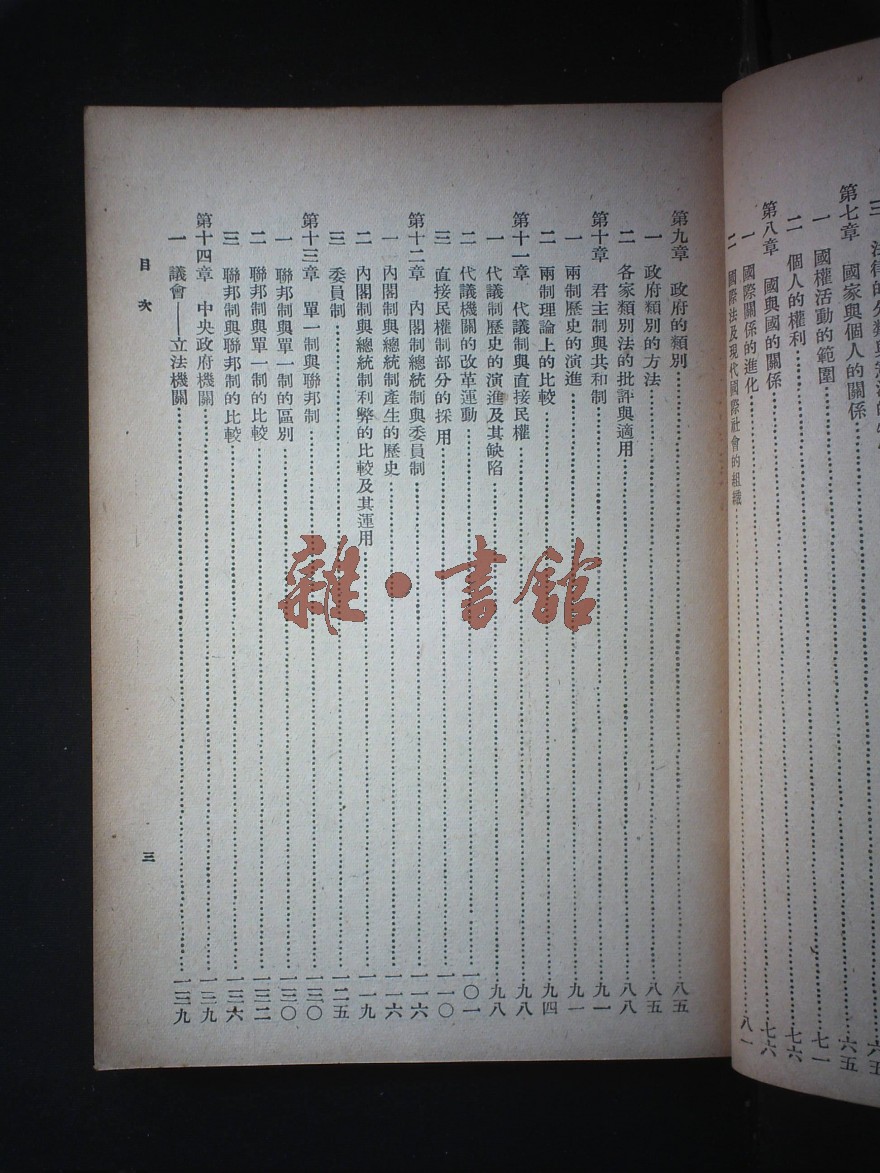 第七章　國家與個人的關係……六五
一　國權活動的範圍……七一
二　個人的權利……七六
第八章　國與國的關係……七六
一　國際關係的進化
二　國際法及現代國際社會的組織……八一
第九章　政府的類別……八五
一　政府類別的方法……八五
二　各家類別法的批評與適用……八八
第十章　君主制與共和制……九一
一　兩制歷史的演進……九一
二　兩制理論上的比較……九四
第十一章　代議制與直接民權……九八
一　代議制歷史的演進及其缺陷……九八
二　代議機關的改革運動……一〇一
三　直接民權制部分的採用……一一〇
第十二章　內閣制總統制與委員制……一一六
一　內閣制與總統制產生的歷史……一一六
二　內閣制與總統制利弊的比較及其運用……一一九
三　委員制……一二五
第十三章　單一制與聯邦制……一三〇
一　聯邦制與單一制的區別……一三〇
二　聯邦制與單一制的比較……一三二
三　聯邦制與聯邦制的比較……一三六
第十四章　中央政府機關……一三九
一　議會——立法機關……一三九
目次
三
雜·書館